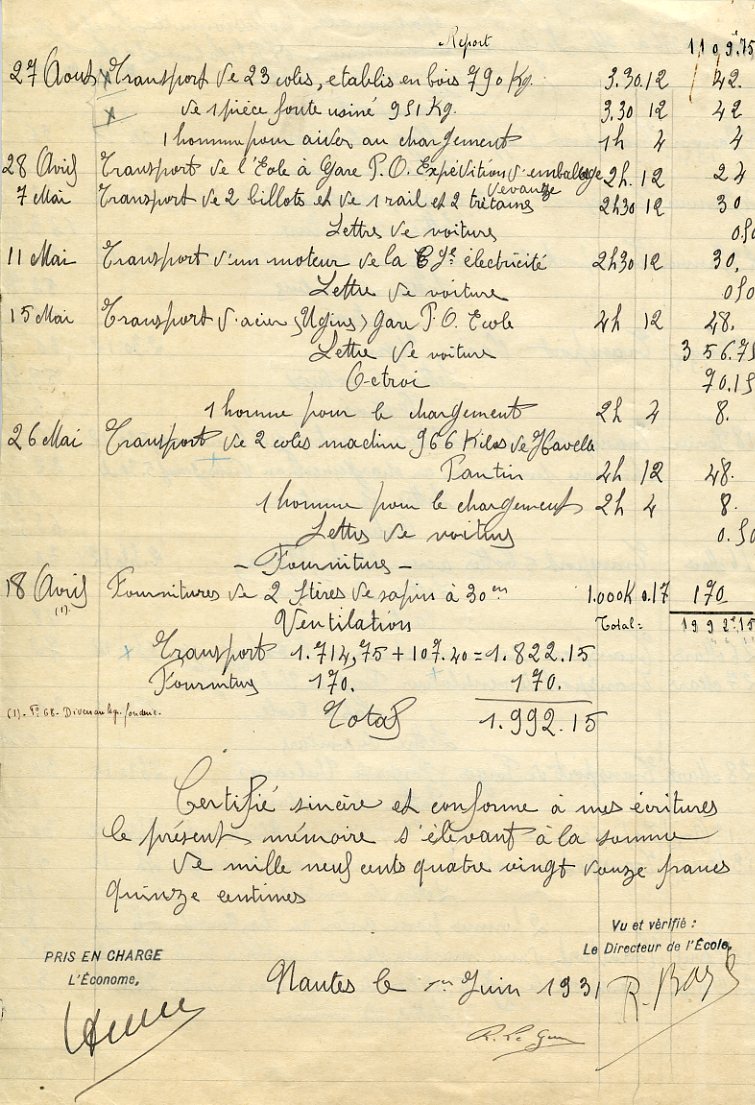 Report 1109.75
27 Aout Transport de 23 colis, etablis en bois 790 Kg. 3.30. 12 42.
de 1 pièce fonte usiné 951 Kg. 3.30 12 42
1 homme pour aider au chargement 1h 4 4
28 Avril Transport de l'Ecole à Gare P.O. Expédition d'emballage 2h. 12 24
7 Mai Transport de 2 billots et de 1 rail et 2 2h30 12 30
Lettre de voitures 0,50
11 Mai Transport d'un moteur de la Cie électricité 2h30 12 30.
Lettre de voiture 0,50
15 Mai Transport d'acier (Ugine) Gare P.O. Ecole 4h 12 48.
Lettre de voiture 356.75
Octroi 70.15
1 homme pour le chargement 2h 4 8.
26 Mai Transport de 2 colis machine 966 Kilos de
Pantin 4h 12 48.
1 homme pour le chargement 2h 4 8.
Lettre de voiture 0.50
- Fournitures -
18 Avril Fournitures de 2 stères de sapin à 30 1.000K 0.17 170.
(1). Ventilation Total: 1992.15
Transport 1.714,75 + 107.40 = 1.822.15
Fourniture 170. 170.
(1).- fonderie.
Total 1.992.15
Certifié sincère et conforme à mes écritures
le présent mémoire s'élevant à la somme
de mille neuf cents quatre vingt douze francs
quinze centimes
Vu et vérifié :
Le Directeur de l'École,
PRIS EN CHARGE
L'Économe,
Nantes le 1er Juin 1931